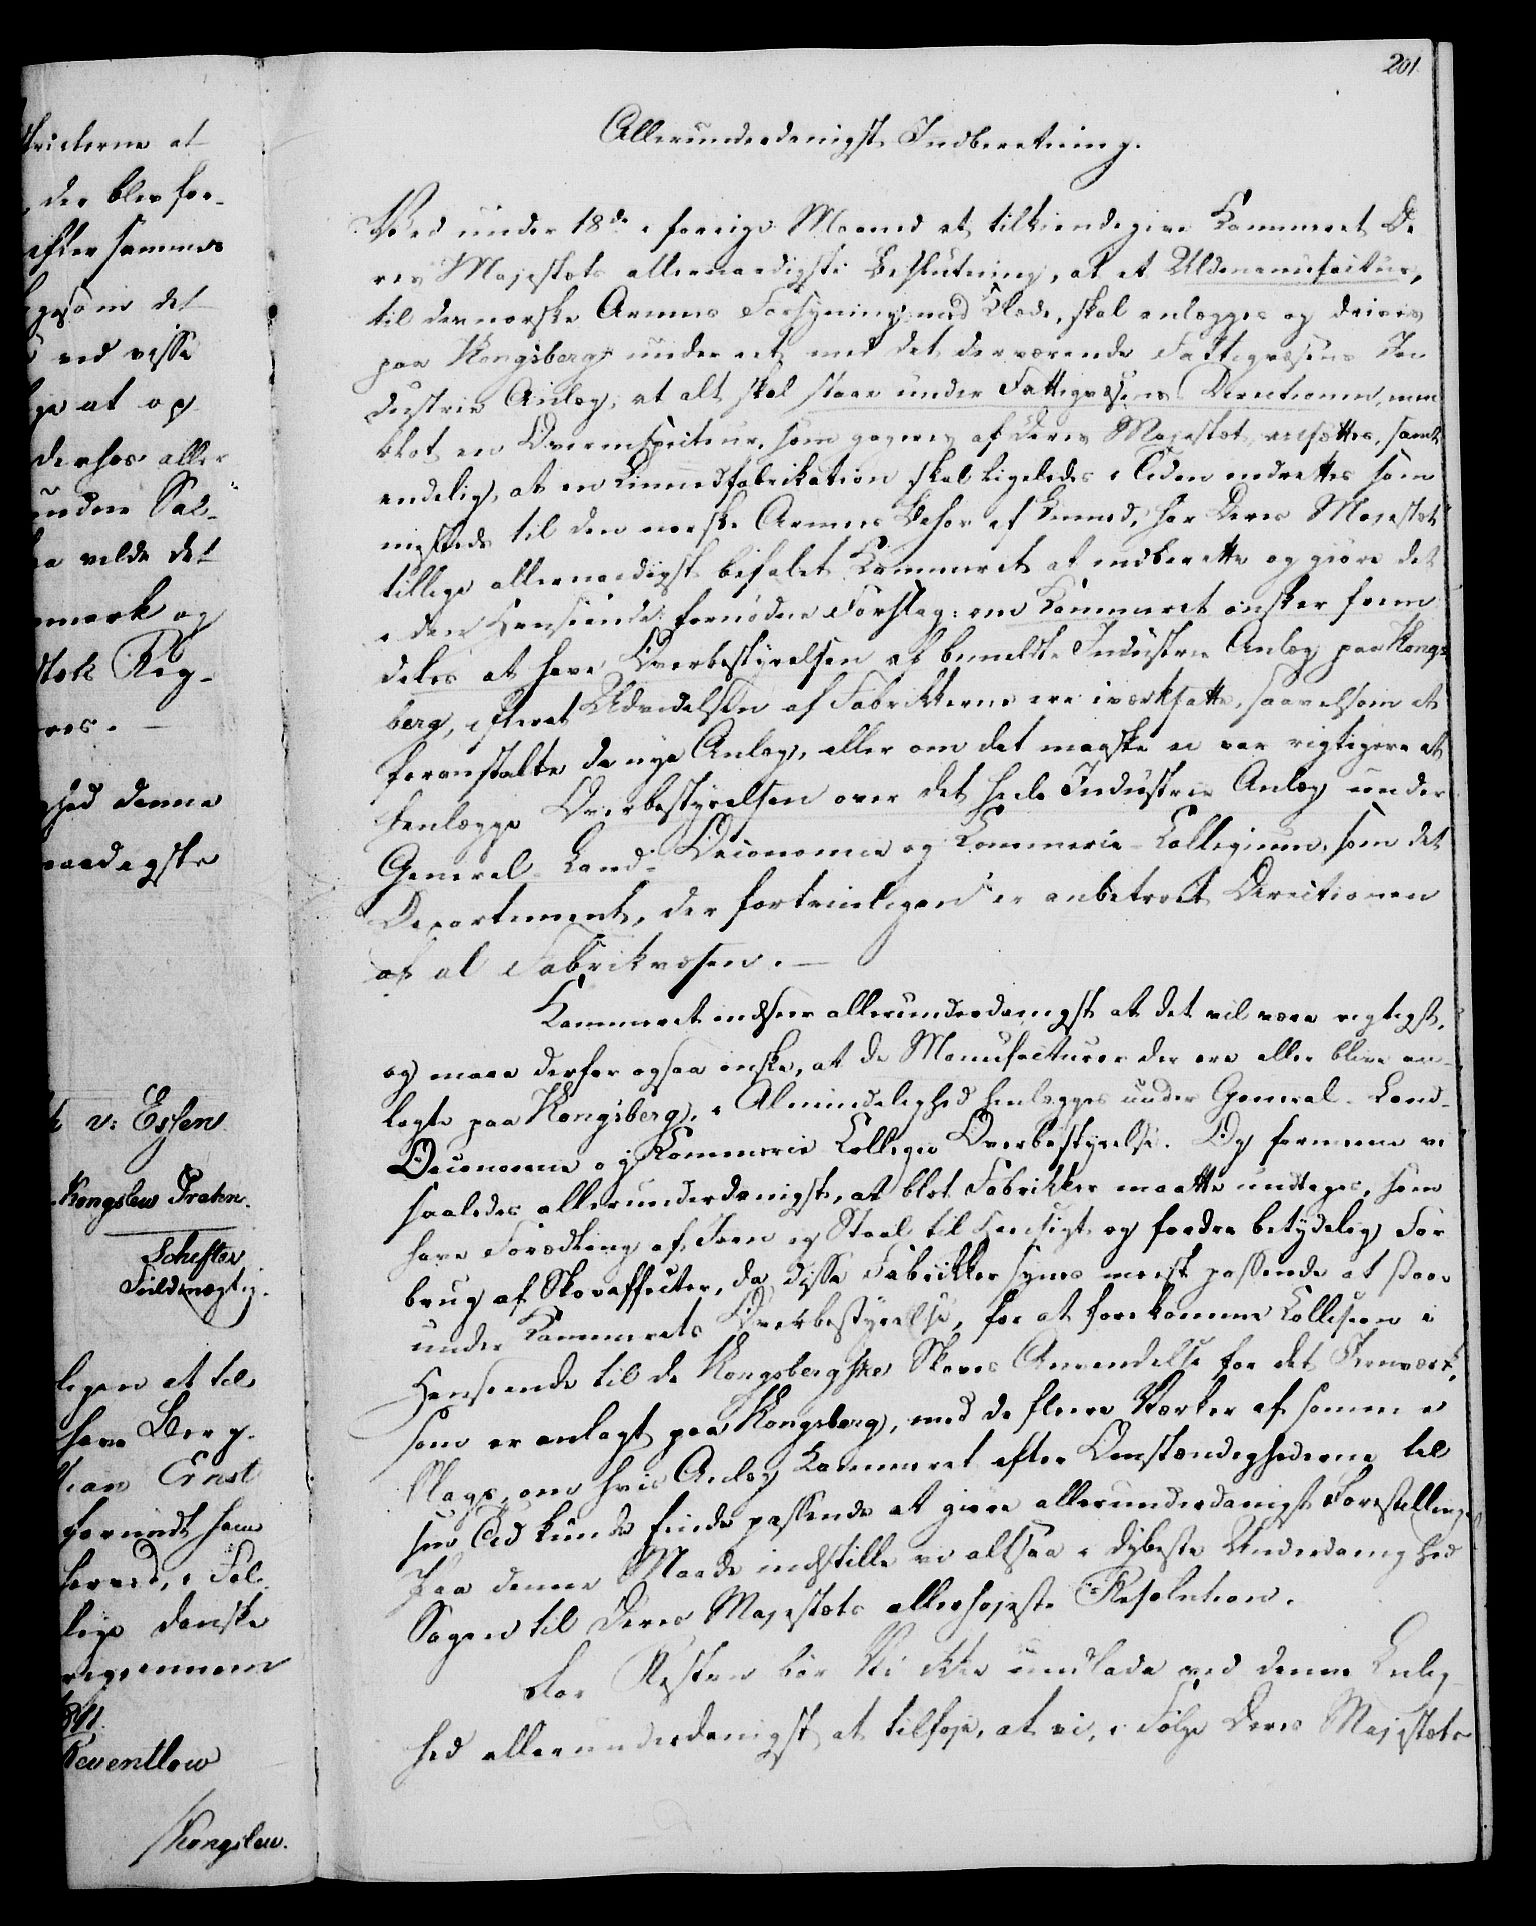 201.
Allerunderdanigst Indberetning.
Ved under 18de i forrige Maaned at tilkiendegive Kammeret De
res Majestæts allernaadigste Beslutning, at et Uldmanufactur,
til den norske Armees Forsyning med Klæde, skal anlægges og drives
paa Kongsberg under eet med det derværende Fattigvæsens In
dustrie Anlæg, at alt skal staae under Fattigvæsenets Directionen, men
blot en Overinspecteur, som gageres af Deres Majestæt, ansættes, samt
endelig, at en Linnedfabrikation skal ligeledes i Tiden indrettes som
meldte til den norske Armees Behov af Linned, har Deres Majestæt
tillige allernaadigst befalet Kammeret at indberette og giøre det
i den Henseende fornødne Forslag: om Kammeret ønsker frem
deles at have Overbestyrelsen af bemeldte Industrie Anlæg paa Kongs
berg, efterat Udvidelsen af Fabrikkerne ere iværksatte, saavelsom at
foranstalte de nye Anlæg, eller om det maaskee ei var rigtigere at
henlægge Overbestyrelsen over det heele Industrie Anlæg under
General-Land-Oeconomie og Kommerce-Collegium, som det
Departement, der fortrinligen er anbetroet Directionen
af al Fabrikvæsen. —
Kammeret indseer allerunderdanigst at det vil være rigtigst,
og maae derfor ogsaa ønske, at de Manufacturer der ere eller blive an-
lagte paa Kongsberg, i Almindelighed henlægges under General-Land-
Oeconomie og Kommerce Collegii Overbestyrelse. Og formene vi
saaledes allerunderdanigst, at blot Fabrikker maatte undtages, som
have Forædling af Jern og Staal til Hensigt og fordre betydelig For
brug af Skoveffecter, da disse Fabrikker synes meest passende at staae
under Kammerets Overbestyrelse, for at forekomme Collision i
Henseende til de Kongsbergske Skoves Anvendelse for det Jernværk,
som er anlagt paa Kongsberg, med de flere Værker af samme
Slags, om hvis Anlæg Kammeret efter Omstændighederne til
sin Tid kunde finde passende at giøre allerunderdanigst Forestilling.
Paa denne Maade indstille vi altsaa i dybeste Underdanighed
Sagen til Deres Majestæts allerhøjeste Resolution.
For Resten bør Vi ikke undlade ved denne Leilig
hed allerunderdanigst at tilføje, at vi, i Følge Deres Majestæts
at
der blev for-
efter sammes
det
ved visse
at op
derhos aller
Sal-
vilde det
mark og
Reg-
denne
naadigste
v: Essen
Kongslew Pratn.
Schifter
Fuldmægtig.
ligen at til
have Berg-
Ernst
fornødt ham
herved, i Føl
lige danske
igiennem
Reventlow
/Kongslew.